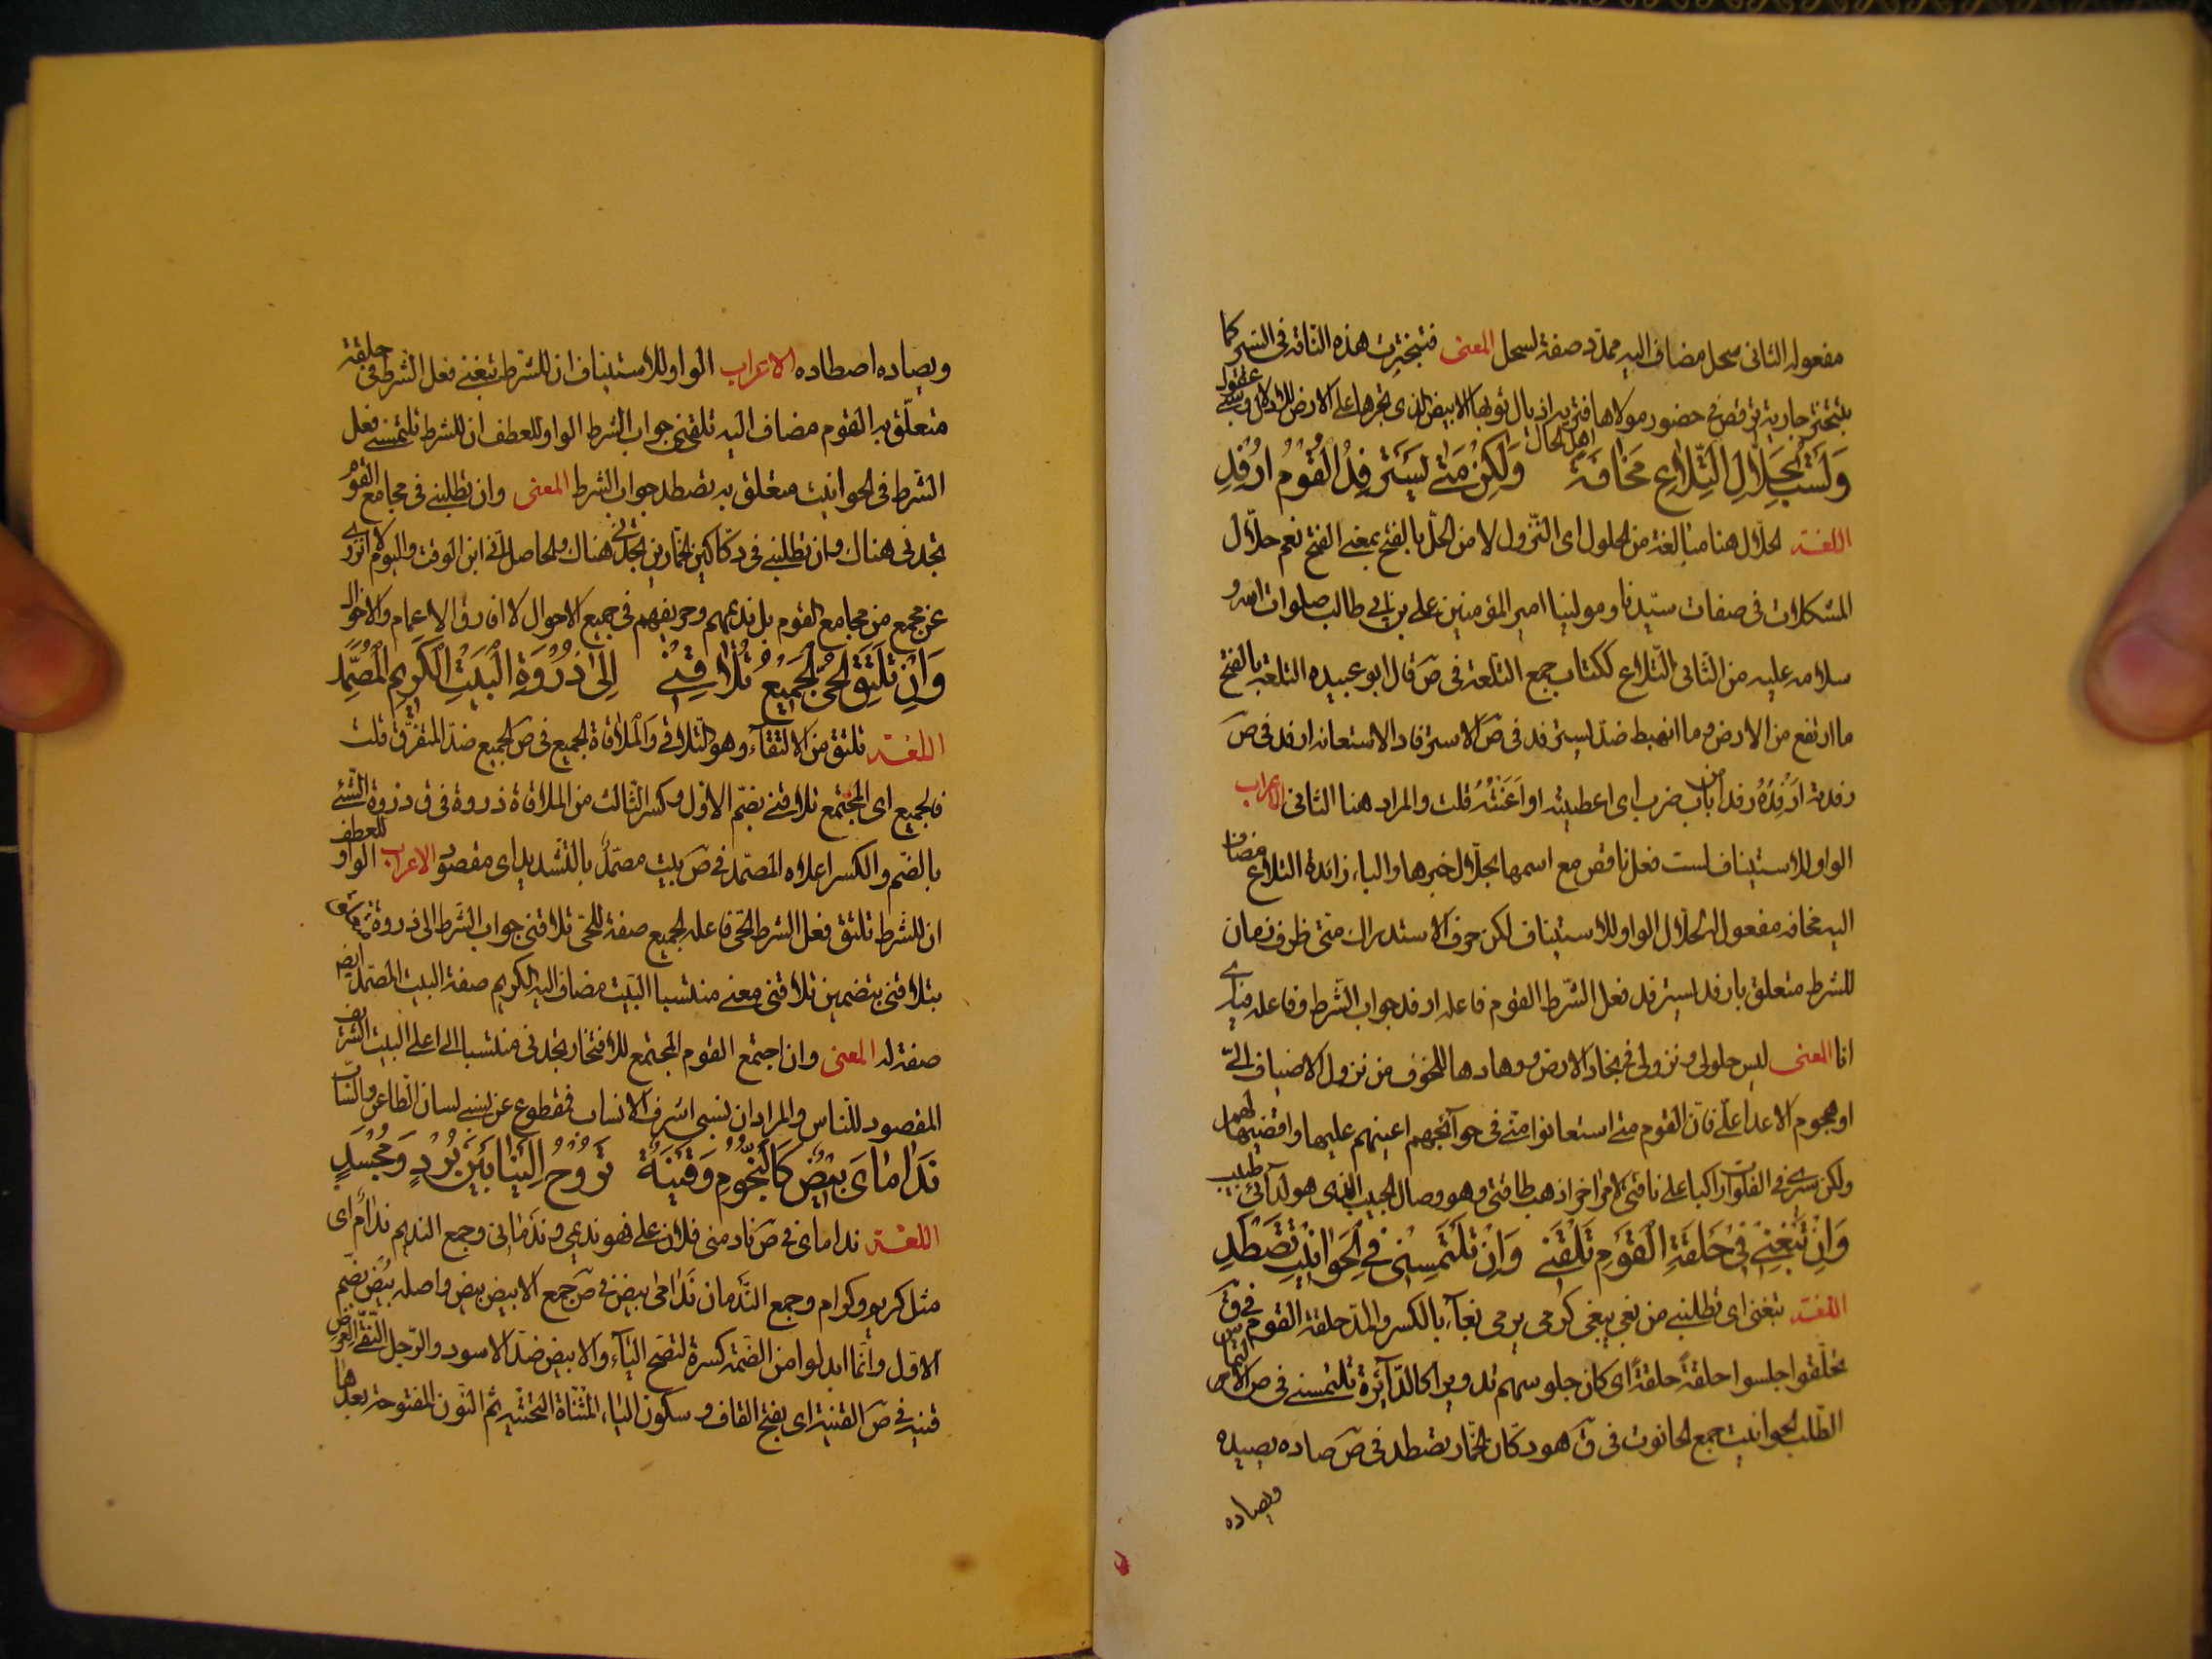 مفعوله الثانى سحل مضاف اليه ممدّد صفة لسحل المعنى فتبخترت هذه الناقة فى السير كما
يتبختر جارية ترقص فى حضور مولاها فتريه اذيال ثوبها الابيض الذى تجرها على الارض للدلال
اهل الحال
وَلَسْتُ بِحَلّالِ التِّلاعِ مَخافَةً وَلكِنْ مَتى يَسْتَرْفِدِ الْقَوْمُ اَرْفِدِ
اللغة الحلّال هنا مبالغة من الحلول اى النّزول لا من الحلّ بالفتح بمعنى الفتح نعم حلّال
المشكلات فى صفات سيّدنا ومولينا امير المؤمنين على بن ابى طالب صلوات الله و
سلامه عليه من الثّانى التّلاع ككتاب جمع التّلعة فى ص قال ابو عبيده التلعة بالفتح
ما ارتفع من الارض وما انهبط ضدّ يسترفد فى ص الاسترفاد الاستعانه ارفد فى ص
رفدته اَرْفِدُهُ رفدا من باب ضرب اى اعطيته او اَعَنْتُهُ قلت والمراد هنا الثانى الاعراب
الواو للاستيناف لست فعل ناقص مع اسمها بحلّال خبرها والباء زائدة التلاع مضاف
اليه مخافه مفعول له لحلّال الواو للاستيناف لكن حرف الاستدراك متى ظرف زمان
للشرط متعلق بارفد يسترفد فعل الشّرط القوم فاعله ارفد جواب الشّرط وفاعله
انا المعنى ليس حلولى ونزولى فى نجاد الارض ووهادها للخوف من نزول الاضياف الىّ
او هجوم الاعدا علىّ فانّ القوم متى استعانوا منّى فى حوآئجهم اعينهم عليها واقضيها لهم
ولكن سيرى فى الفلوات راكبا على ناقتى لامر اخر اذهب طاقتى وهو وصال الحبيب الذى هو لدآئى طبيب
وَاِنْ تَبْغِنِى فِى حَلْقَةِ الْقَوْمِ تَلْقَنِى وَاِنْ تَلْتَمِسْنِى فِى الْحَوانِيتِ تَصْطَدِ
اللغة تبغنى اى تطلبنى من بغى يبغى كرمى يرمى بغآء بالكسر والمدّ حلقة القوم فى ق
تحلّقوا جلسوا حلقةً حلقةً اى كان جلوسهم تدويرا كالدّآئرة تلتمسنى فى ص الالتماس
الطّلب الحوانيت جمع الحانوت فى ق هو دكّان الخمّار تصطد فى ص صاده يصيده
ويصاده
ويصاده اصطاده الاعراب الواو للاستيناف ان للشرط تبغنى فعل الشّرط فى حلقة
متعلّق به القوم مضاف اليه تلقنى جواب الشرط الواو للعطف ان للشرط تلتمسنى فعل
الشرط فى الحوانيت متعلق به تصطد جواب الشرط المعنى وان تطلبنى فى مجامع القوم
تجدنى هناك وان تطلبنى فى دكاكين الخمّارين تجدنى هناك والحاصل انّى ابن الوقت واليوم لا
عن مجمع من مجامع القوم بل نديمهم وحريفهم فى جميع الاحوال لا افارق الاعمام والاخوال
وَاِنْ تَلْتَقِ الْحَىُّ الْجَمِيعُ تُلاقِنِى اِلى ذُرْوَةِ الْبَيْتِ الْكَرِيمِ الْمُصَمَّدِ
اللغة تلتق من الالتقآء وهو التّلاقى والملاقاة الجميع فى ص الجميع ضدّ المتفرّق قلت
فالجميع اى المجتمع تلاقنى بضمّ الاوّل وكسر الثّالث من الملاقاة ذروة فى ق ذروة الشّىء
بالضّم والكسر اعلاه المصمّد فى ص بيت مصمّد بالتّشديد اى مقصود الاعراب الواو للعطف
ان للشّرط تلتق فعل الشرط الحىّ فاعله الجميع صفة للحىّ تلاقنى جواب الشّرط الى ذروة متعلق
بتلاقنى بتضمين تلاقنى معنى منتسبا البيت مضاف اليه الكريم صفة البيت المصمّد ايضا
صفة له المعنى وان اجتمع القوم المجتمع للافتخار تجدنى منتسبا الى اعلى البيت الشريف
المقصود للنّاس والمراد ان نسبى اشرف الانساب فمقطوع عن نسبى لسان الطّاعن والسّاب
نَداماىَ بِيضٌ كَالنُّجُومِ وَقَيْنَةٌ تَرُوحُ اِلَيْنا بَيْنَ بُرْدٍ وَمُجْسَدٍ
اللغة نداماى فى ص نادمنى فلان على فهو نديمى وندمانى وجمع النديم ندام اى
مثل كريم وكرام وجمع النّدمان ندامى بيض فى ص جمع الابيض بيض واصله بُيْض بضمّ
الاوّل وانّما ابدلوا من الضّمة كسرة لتصحّ اليآء والابيض ضدّ الاسود والرّجل النّقىّ العرض
قينة فى ص القينة اى بفتح القاف وسكون الياء المثنّاة التحتيه ثمّ النّون المفتوحة بعدها